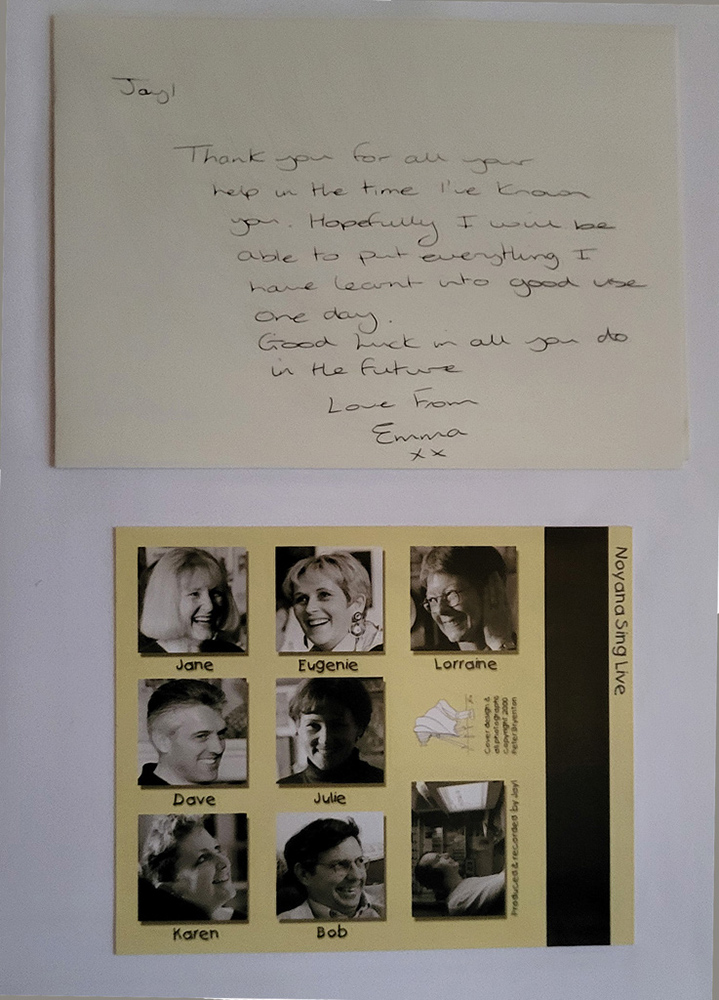 Jay!
Thank you for all your
help in the time I've known
you. Hopefully I will be
able to put everything I
have learnt into good use
one day.
Good Luck in all you do
in the future
Love From
Emma
xx
Jane
Eugenie
Lorraine
Dave
Julie
Karen
Bob
Cover design &
all photographs
Copyright 2000
Peter Bryenton
Produced & recorded by Jay!
Nayana Sing Live